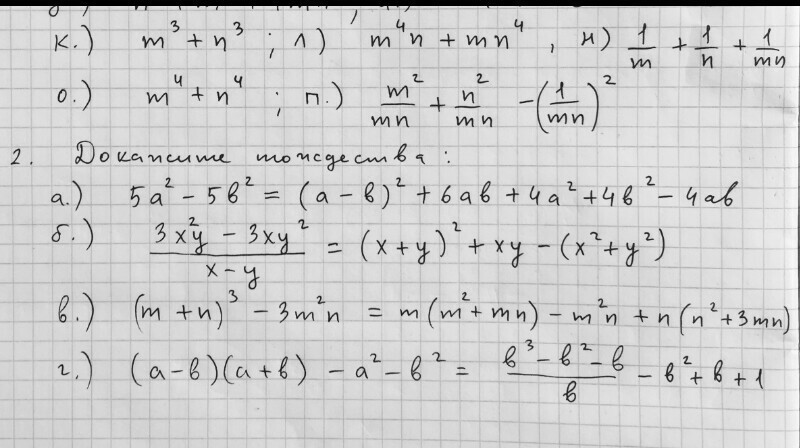 к.) m³ + n³ ; л) m⁴n + mn⁴ , н) 1/m + 1/n + 1/mn
о.) m⁴ + n⁴ ; п.) m²/mn + n²/mn - (1/mn)²
2. Докажите тождества :
а.) 5a² - 5в² = (a - в)² + 6ав + 4a² + 4в² - 4ав
б.) (3x²y - 3xy²)/(x - y) = (x + y)² + xy - (x² + y²)
в.) (m + n)³ - 3m²n = m(m² + mn) - m²n + n(n² + 3mn)
г.) (a - в)(a + в) - a² - в² = (в³ - в² - в)/в - в² + в + 1